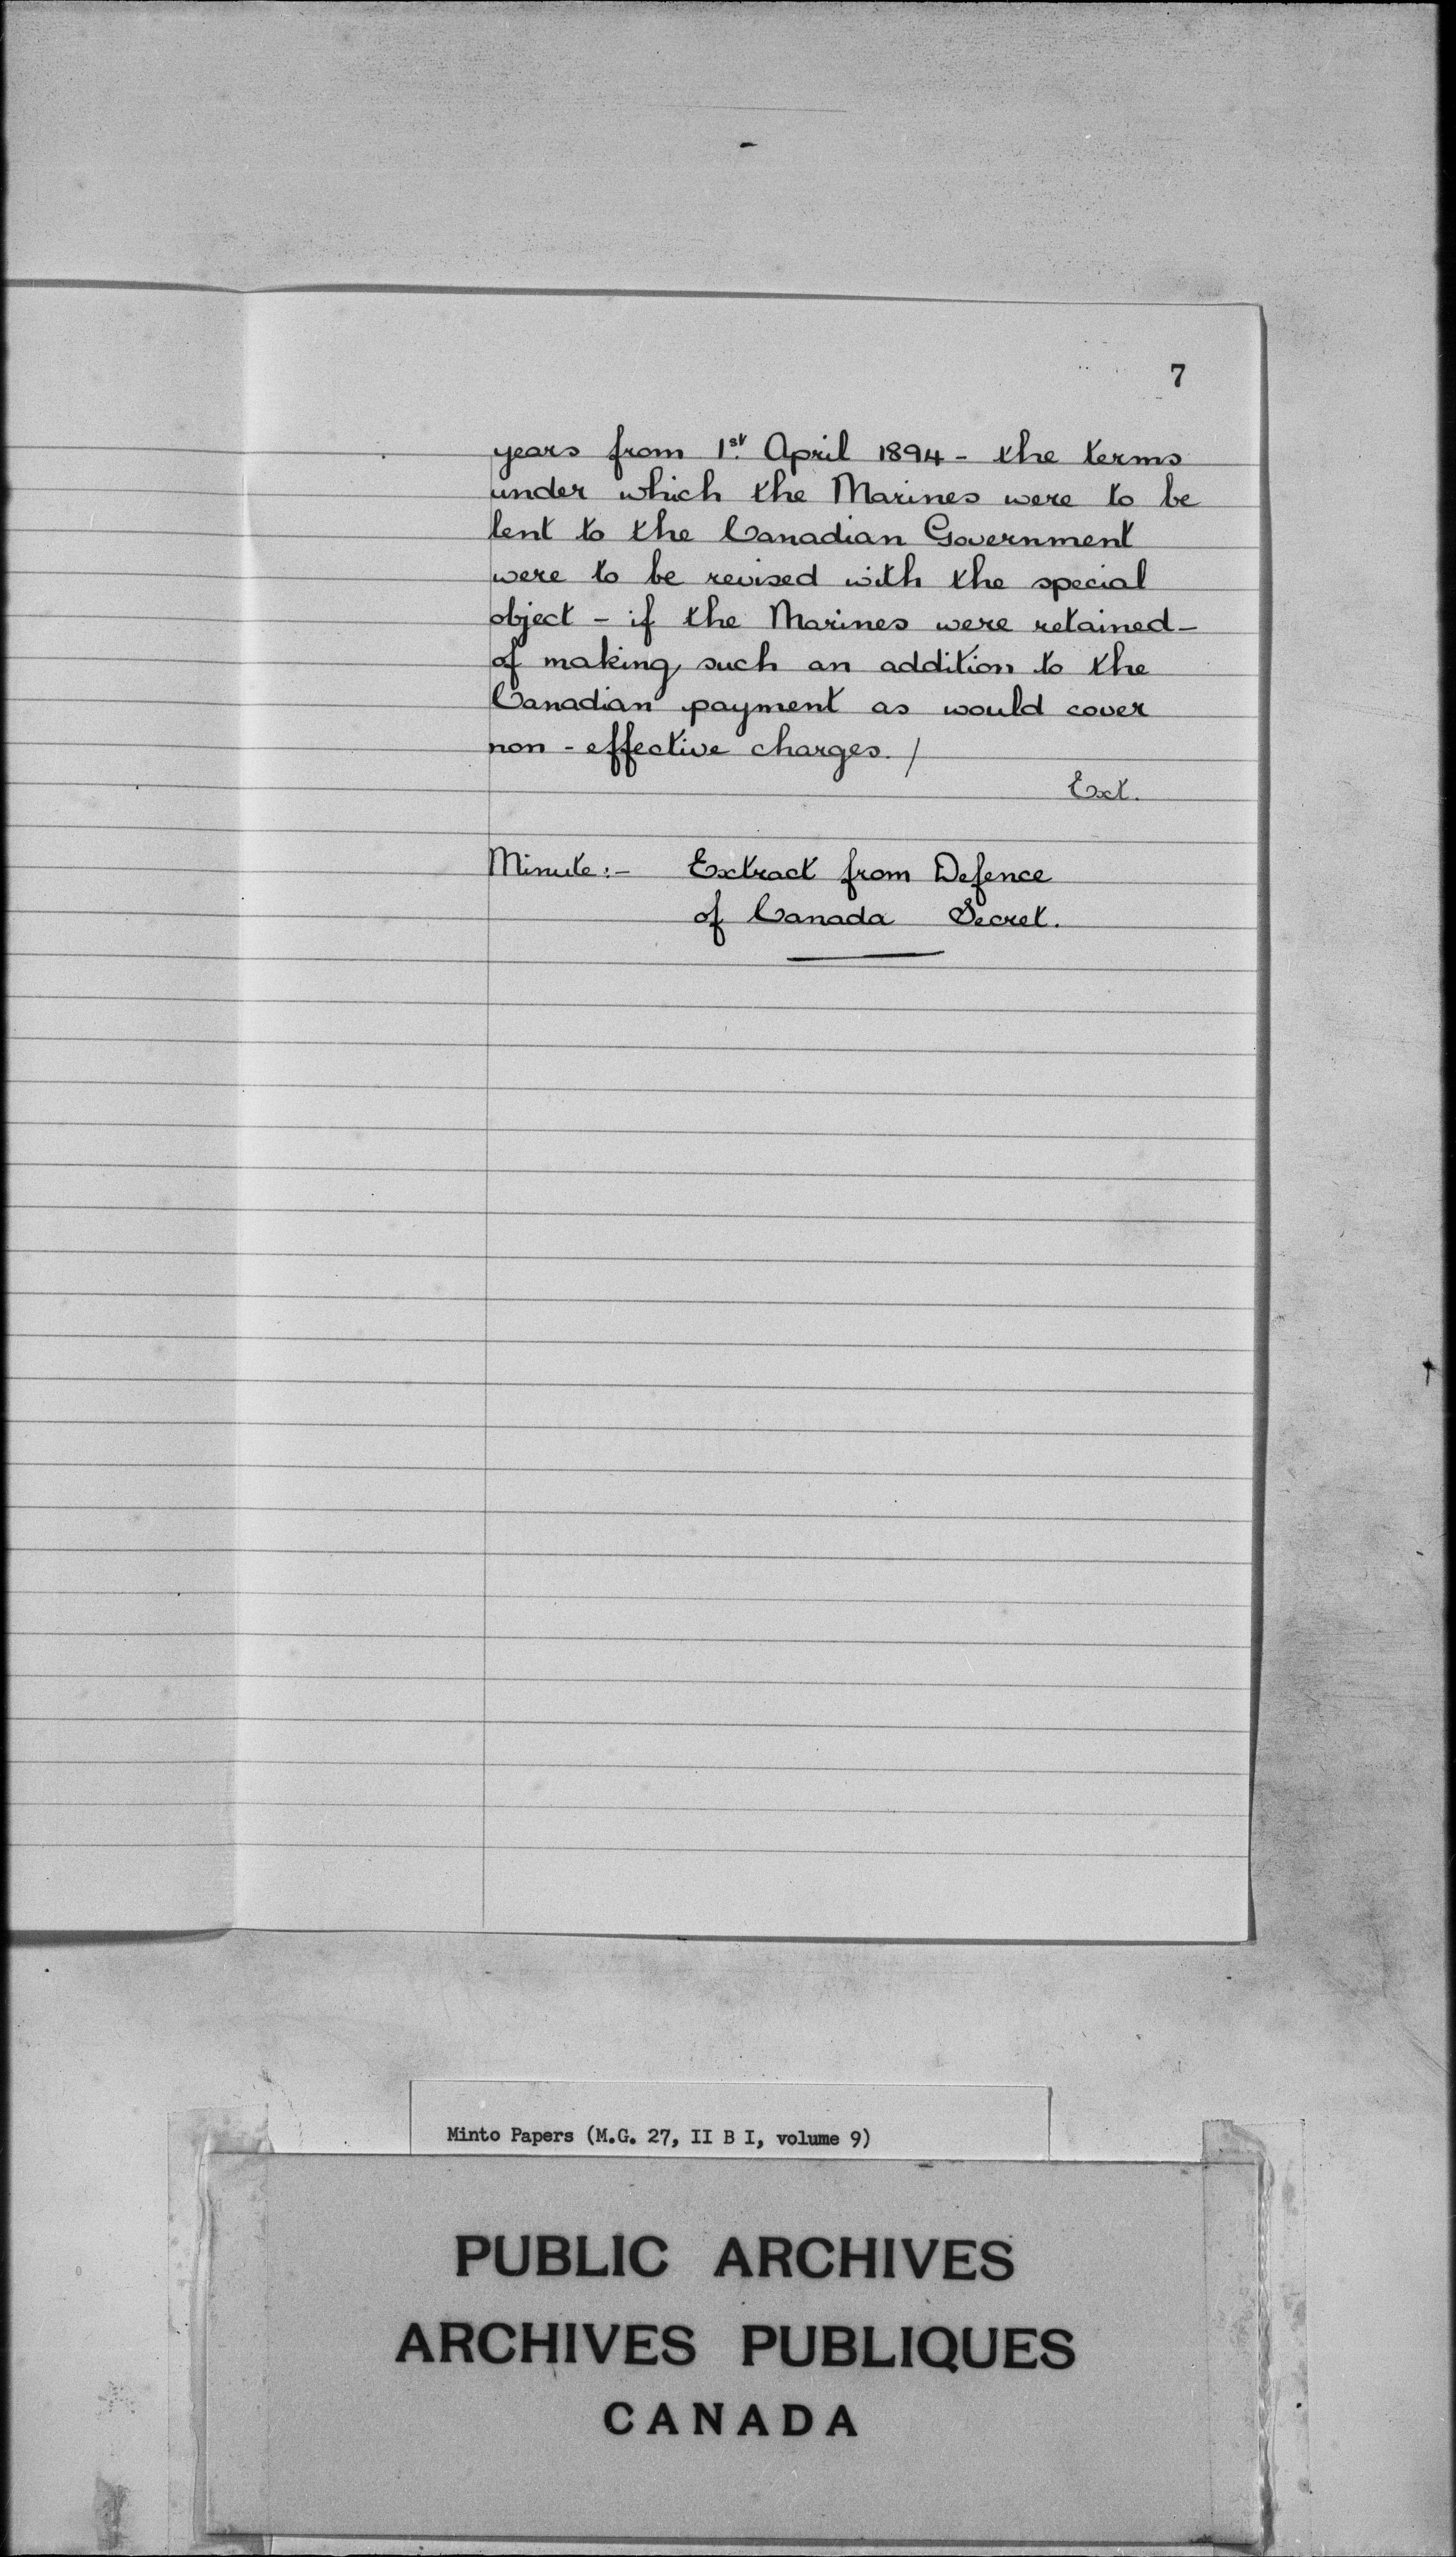 7
years from 1st. April 1894 - the terms
under which the Marines were to be
lent to the Canadian Government
were to be revised with the special
object - if the Marines were retained -
of making such an addition to the
Canadian payment as would cover
non - effective charges. /
Ext.
Minute :- Extract from Defence
of Canada Secret.
Minto Papers (M.G. 27, II B I, volume 9)
PUBLIC ARCHIVES
ARCHIVES PUBLIQUES
CANADA